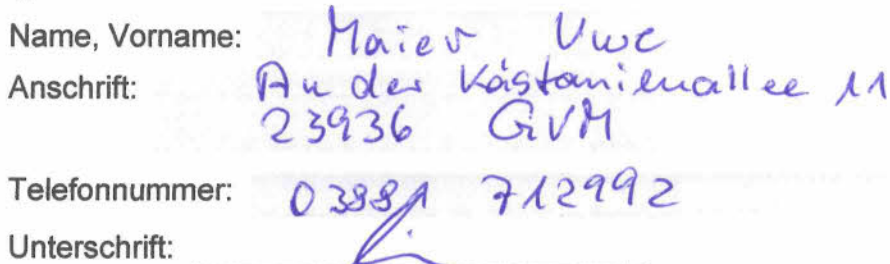 Name, Vorname: Maier Uwe
Anschrift: An der Kastanienallee 11
23936 GVM
Telefonnummer: 03881 712992
Unterschrift: